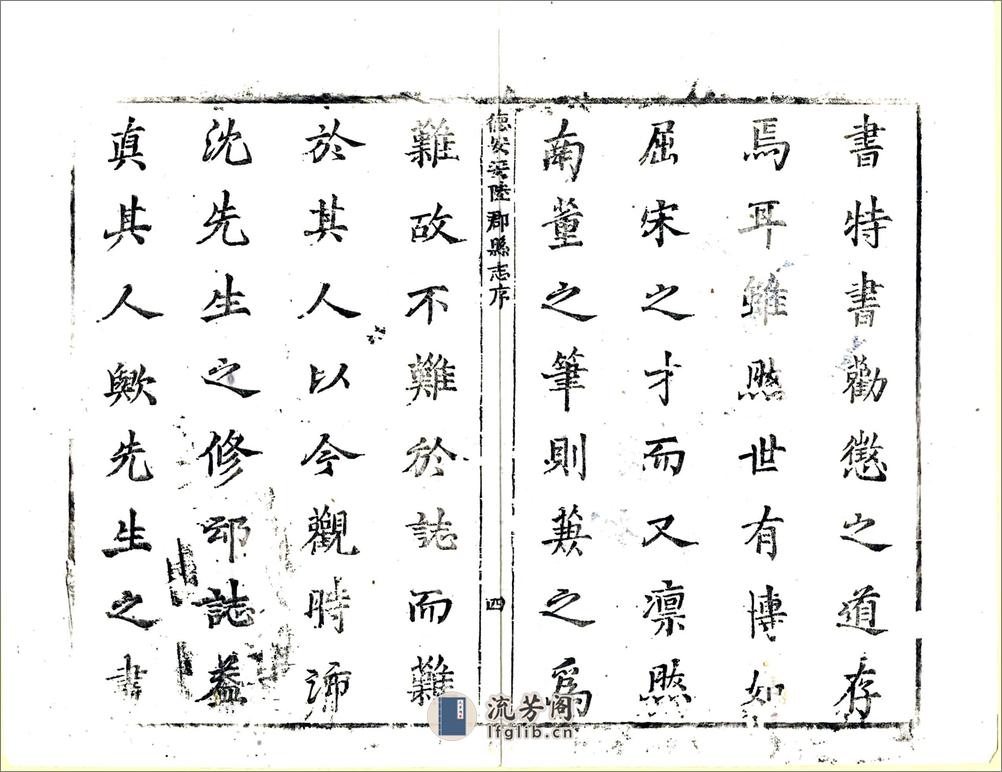 書特書勸懲之道存
焉耳雖然世有博如
屈宋之才而又凛然
南董之筆則兼之爲
德安安陸郡縣志序 四
難故不難於誌而難
於其人以今觀時沛
沈先生之修誌葢
真其人歟先生之書
流芳阁
lfglib.cn